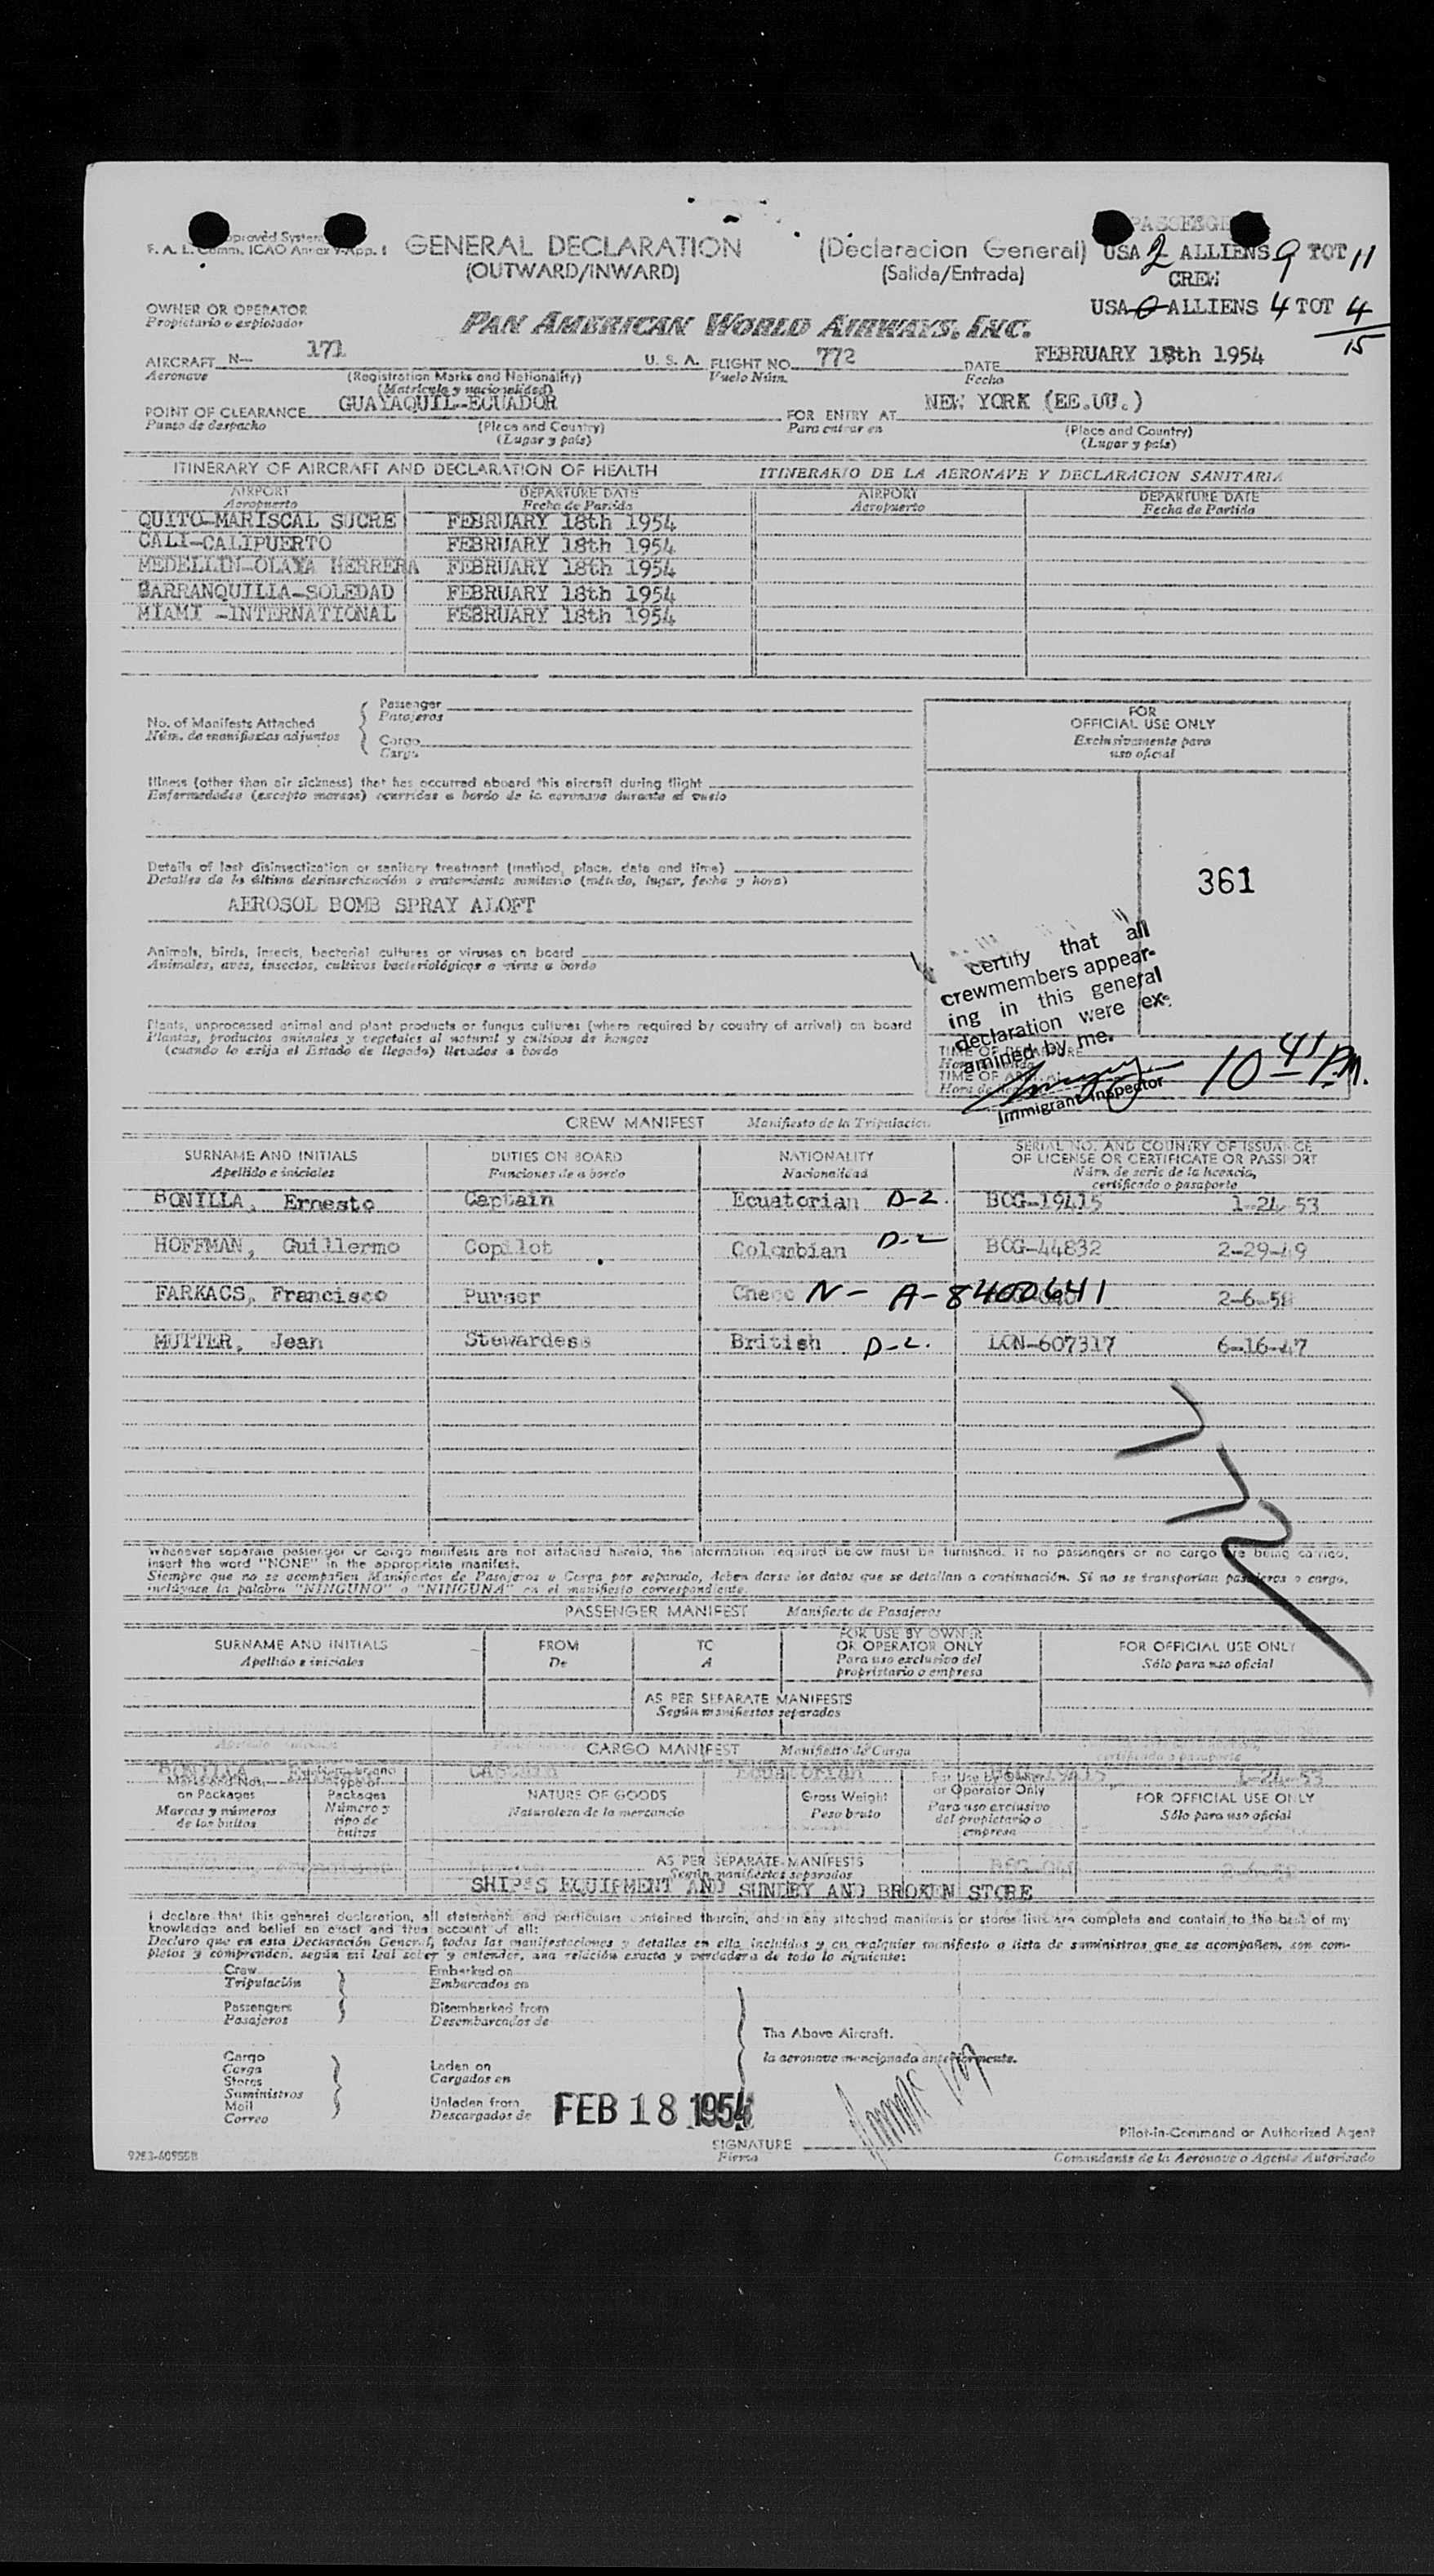 PASSENGE
F. A. L. Comm. ICAO Annex 9-App. 1
GENERAL DECLARATION
(Declaracion General)
USA 2 ALLIENS 9 TOT 11
(OUTWARD/INWARD)
(Salida/Entrada)
CREW
USA 0 ALLIENS 4 TOT 4
15
OWNER OR OPERATOR
Propietario o explotador
PAN AMERICAN WORLD AIRWAYS, INC.
AIRCRAFT N- 171 U. S. A. FLIGHT NO. 772 DATE FEBRUARY 18th 1954
Aeronave (Registration Marks and Nationality) Vuelo Núm. Fecha
(Matrícula y nacionalidad)
POINT OF CLEARANCE GUAYAQUIL-ECUADOR FOR ENTRY AT NEW YORK (EE.UU.)
Punto de despacho (Place and Country) Para entrar en (Place and Country)
(Lugar y país) (Lugar y país)
ITINERARY OF AIRCRAFT AND DECLARATION OF HEALTH ITINERARIO DE LA AERONAVE Y DECLARACION SANITARIA
AIRPORT DEPARTURE DATE AIRPORT DEPARTURE DATE
Aeropuerto Fecha de Partida Aeropuerto Fecha de Partida
QUITO-MARISCAL SUCRE FEBRUARY 18th 1954
CALI-CALIPUERTO FEBRUARY 18th 1954
MEDELLIN-OLAYA HERRERA FEBRUARY 18th 1954
BARRANQUILLA-SOLEDAD FEBRUARY 18th 1954
MIAMI -INTERNATIONAL FEBRUARY 18th 1954
No. of Manifests Attached
Núm. de manifiestos adjuntos
Passenger
Pasajeros
Cargo
Carga
FOR
OFFICIAL USE ONLY
Exclusivamente para
uso oficial
Illness (other than air sickness) that has occurred aboard this aircraft during flight
Enfermedades (excepto mareos) ocurridas a bordo de la aeronave durante el vuelo
Details of last disinsectization or sanitary treatment (method, place, date and time)
Detalles de la última desinsectización o tratamiento sanitario (método, lugar, fecha y hora)
AEROSOL BOMB SPRAY ALOFT
361
Animals, birds, insects, bacterial cultures or viruses on board
Animales, aves, insectos, cultivos bacteriológicos o virus a bordo
certify that all
crewmembers appear-
ing in this general
declaration were ex-
amined by me.
Immigrant Inspector
Plants, unprocessed animal and plant products or fungus cultures (where required by country of arrival) on board
Plantas, productos animales y vegetales al natural y cultivos de hongos
(cuando lo exija el Estado de llegada) llevados a bordo
TIME OF DEPARTURE
TIME OF ARRIVAL
10 41 P.M.
CREW MANIFEST Manifiesto de la Tripulacion
SURNAME AND INITIALS DUTIES ON BOARD NATIONALITY SERIAL NO. AND COUNTRY OF ISSUANCE
OF LICENSE OR CERTIFICATE OR PASSPORT
Apellido e iniciales Funciones de a bordo Nacionalidad Núm. de serie de la licencia,
certificado o pasaporte
BONILLA, Ernesto Captain Ecuatorian D-2. BOG-19415 1-24-53
HOFFMAN, Guillermo Copilot Colombian D-2 BOG-44832 2-29-49
FARKACS, Francisco Purser Checo N- A-8400641 2-6-58
MUTTER, Jean Stewardess British D-2. LON-607317 6-16-47
Whenever separate passenger or cargo manifests are not attached hereto, the information required below must be furnished. If no passengers or no cargo are being carried,
insert the word "NONE" in the appropriate manifest.
Siempre que no se acompañen Manifiestos de Pasajeros o Carga por separado, deben darse los datos que se detallan a continuación. Si no se transportan pasajeros o cargo,
inclúyase la palabra "NINGUNO" o "NINGUNA" en el manifiesto correspondiente.
PASSENGER MANIFEST Manifiesto de Pasajeros
SURNAME AND INITIALS FROM TO FOR USE BY OWNER
OR OPERATOR ONLY FOR OFFICIAL USE ONLY
Apellido e iniciales De A Para uso exclusivo del
propietario o empresa Sólo para uso oficial
AS PER SEPARATE MANIFESTS
Según manifiestos separados
CARGO MANIFEST Manifiesto de Carga
BONILLA, Captain Ecuatorian 1-24-53
Marks and Nos.
on Packages
Marcas y números
de los bultos
Type of
Packages
Número y
tipo de
bultos
NATURE OF GOODS
Naturaleza de la mercancia
Gross Weight
Peso bruto
For Use by Owner
or Operator Only
Para uso exclusivo
del propietario o
empresa
FOR OFFICIAL USE ONLY
Sólo para uso oficial
AS PER SEPARATE MANIFESTS
Según manifiestos separados
SHIP'S EQUIPMENT AND SUNDRY AND BROKEN STORE
I declare that this general declaration, all statements and particulars contained therein, and in any attached manifests or stores lists are complete and contain to the best of my
knowledge and belief an exact and true account of all:
Declaro que en esta Declaración General, todas las manifestaciones y detalles en ella incluidos y en cualquier manifiesto o lista de suministros que se acompañen, son com-
pletos y comprenden, según mi leal saber y entender, una relación exacta y verdadera de todo lo siguiente:
Crew
Tripulación
Embarked on
Embarcados en
Passengers
Pasajeros
Disembarked from
Desembarcados de
The Above Aircraft.
la aeronave mencionada anteriormente.
Cargo
Carga
Stores
Suministros
Mail
Correo
Laden on
Cargados en
Unladen from
Descargados de
FEB 18 1954
SIGNATURE
Firma
Pilot-in-Command or Authorized Agent
Comandante de la Aeronave o Agente Autorizado